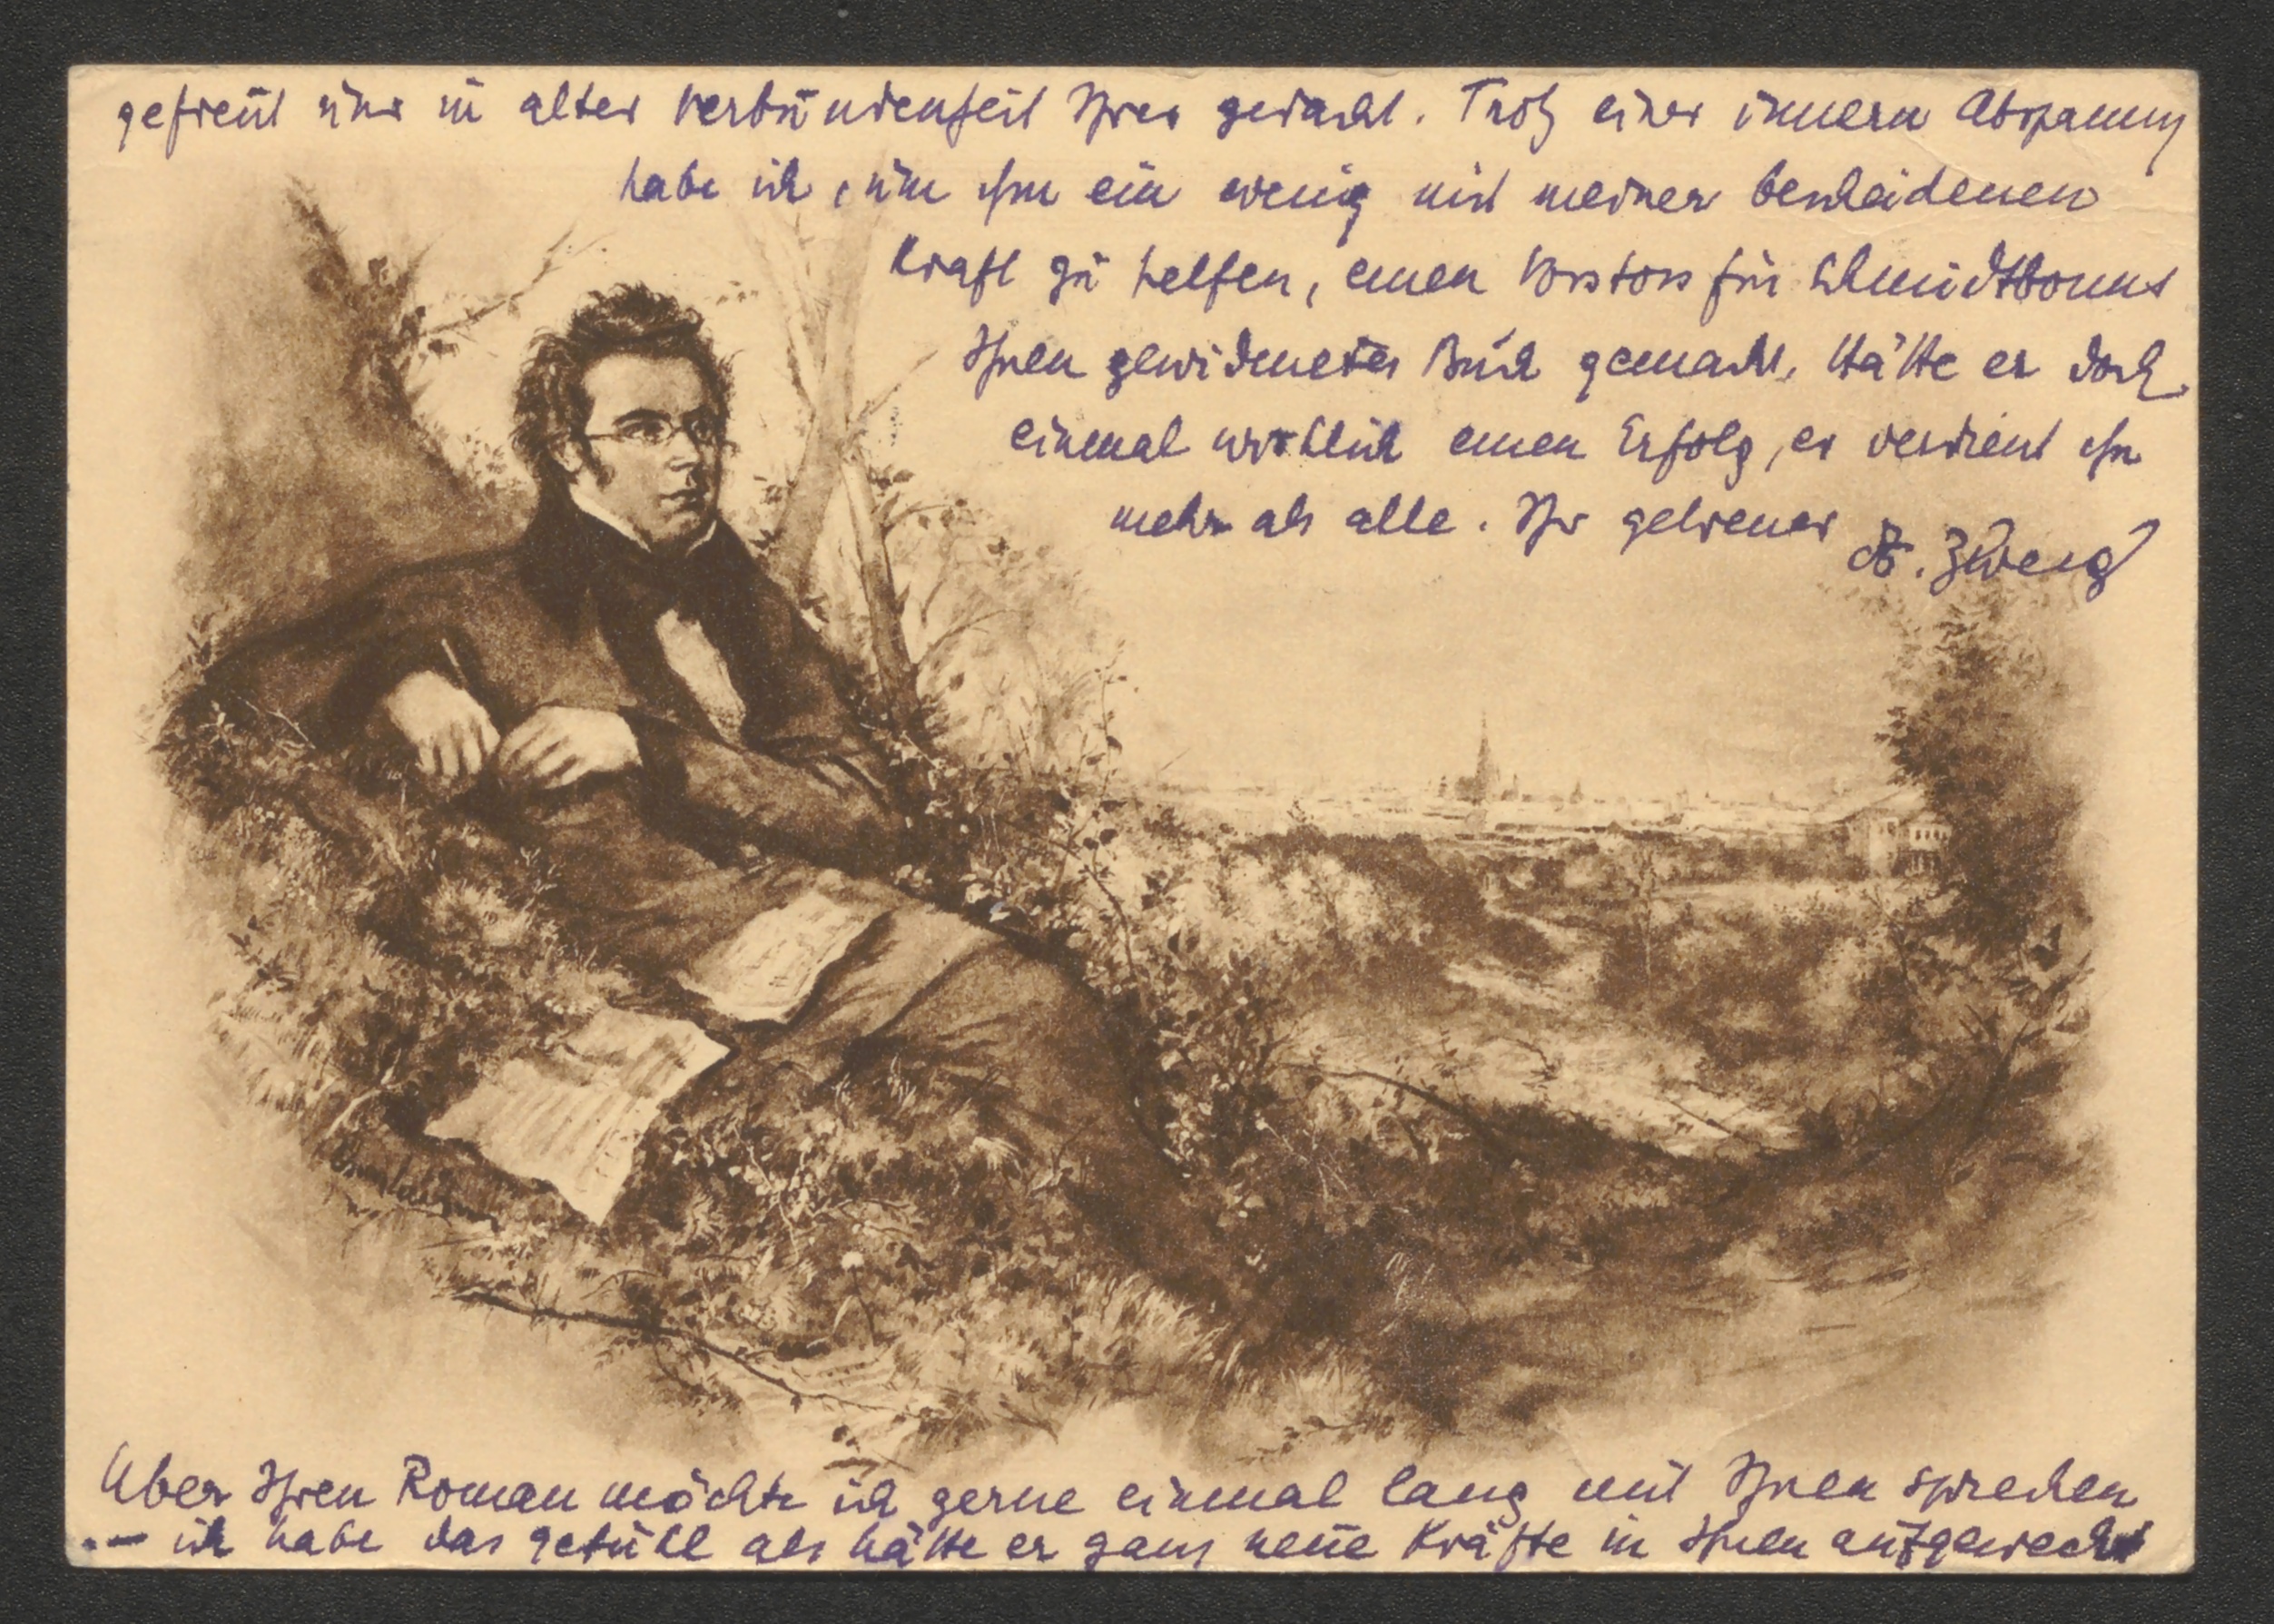 gefreut und in alter Verbundenheit Ihrer gedacht. Trotz einer innern Abspannung
habe ich, um ihm ein wenig mit meiner bescheidenen
Kraft zu helfen, einen Vorstoss für Schmidtbonns
Ihnen gewidmetes Buch gemacht. Hätte er doch
einmal wirklich einen Erfolg, er verdient ihn
mehr als alle. Ihr getreuer
St. Zweig
Über Ihren Roman möchte ich gerne einmal lang mit Ihnen sprechen
— ich habe das Gefühl als hätte er ganz neue Kräfte in Ihnen aufgeweckt